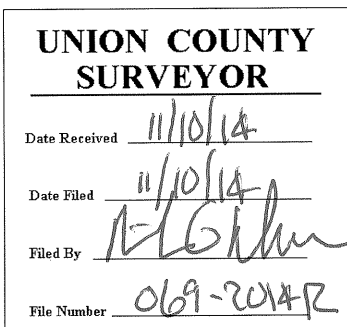 UNION COUNTY
SURVEYOR
Date Received 11/10/14
Date Filed 11/10/14
Filed By
File Number 069-2014R